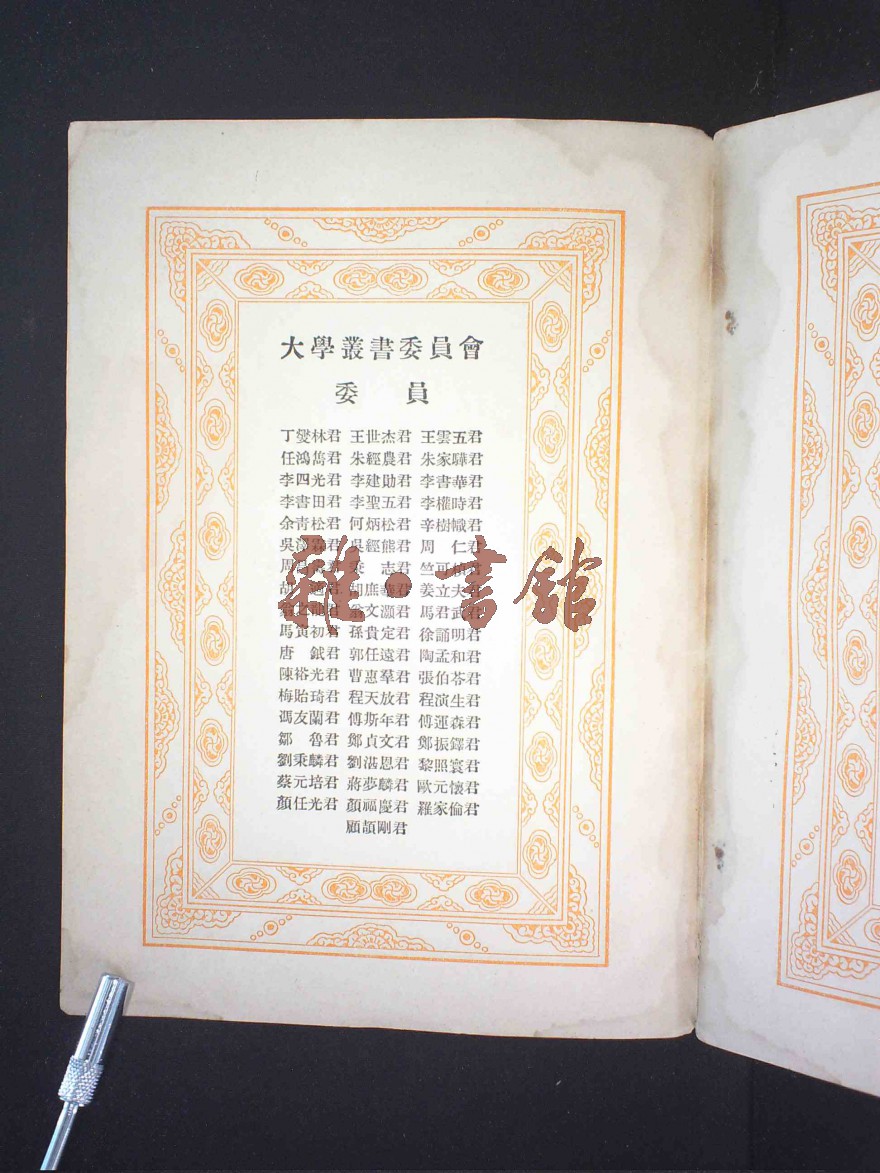 大學叢書委員會
委 員
丁燮林君 王世杰君 王雲五君
任鴻雋君 朱經農君 朱家驊君
李四光君 李建勛君 李書華君
李書田君 李聖五君 李權時君
余青松君 何炳松君 辛樹幟君
吳澤霖君 吳經熊君 周 仁君
周 志君 竺可楨君
胡 適君 胡庶華君 姜立夫君
翁之龍君 翁文灝君 馬君武君
馬寅初君 孫貴定君 徐誦明君
唐 鉞君 郭任遠君 陶孟和君
陳裕光君 曹惠羣君 張伯苓君
梅貽琦君 程天放君 程演生君
馮友蘭君 傅斯年君 傅運森君
鄒 魯君 鄭貞文君 鄭振鐸君
劉秉麟君 劉湛恩君 黎照寰君
蔡元培君 蔣夢麟君 歐元懷君
顏任光君 顏福慶君 羅家倫君
顧頡剛君
雜·書館